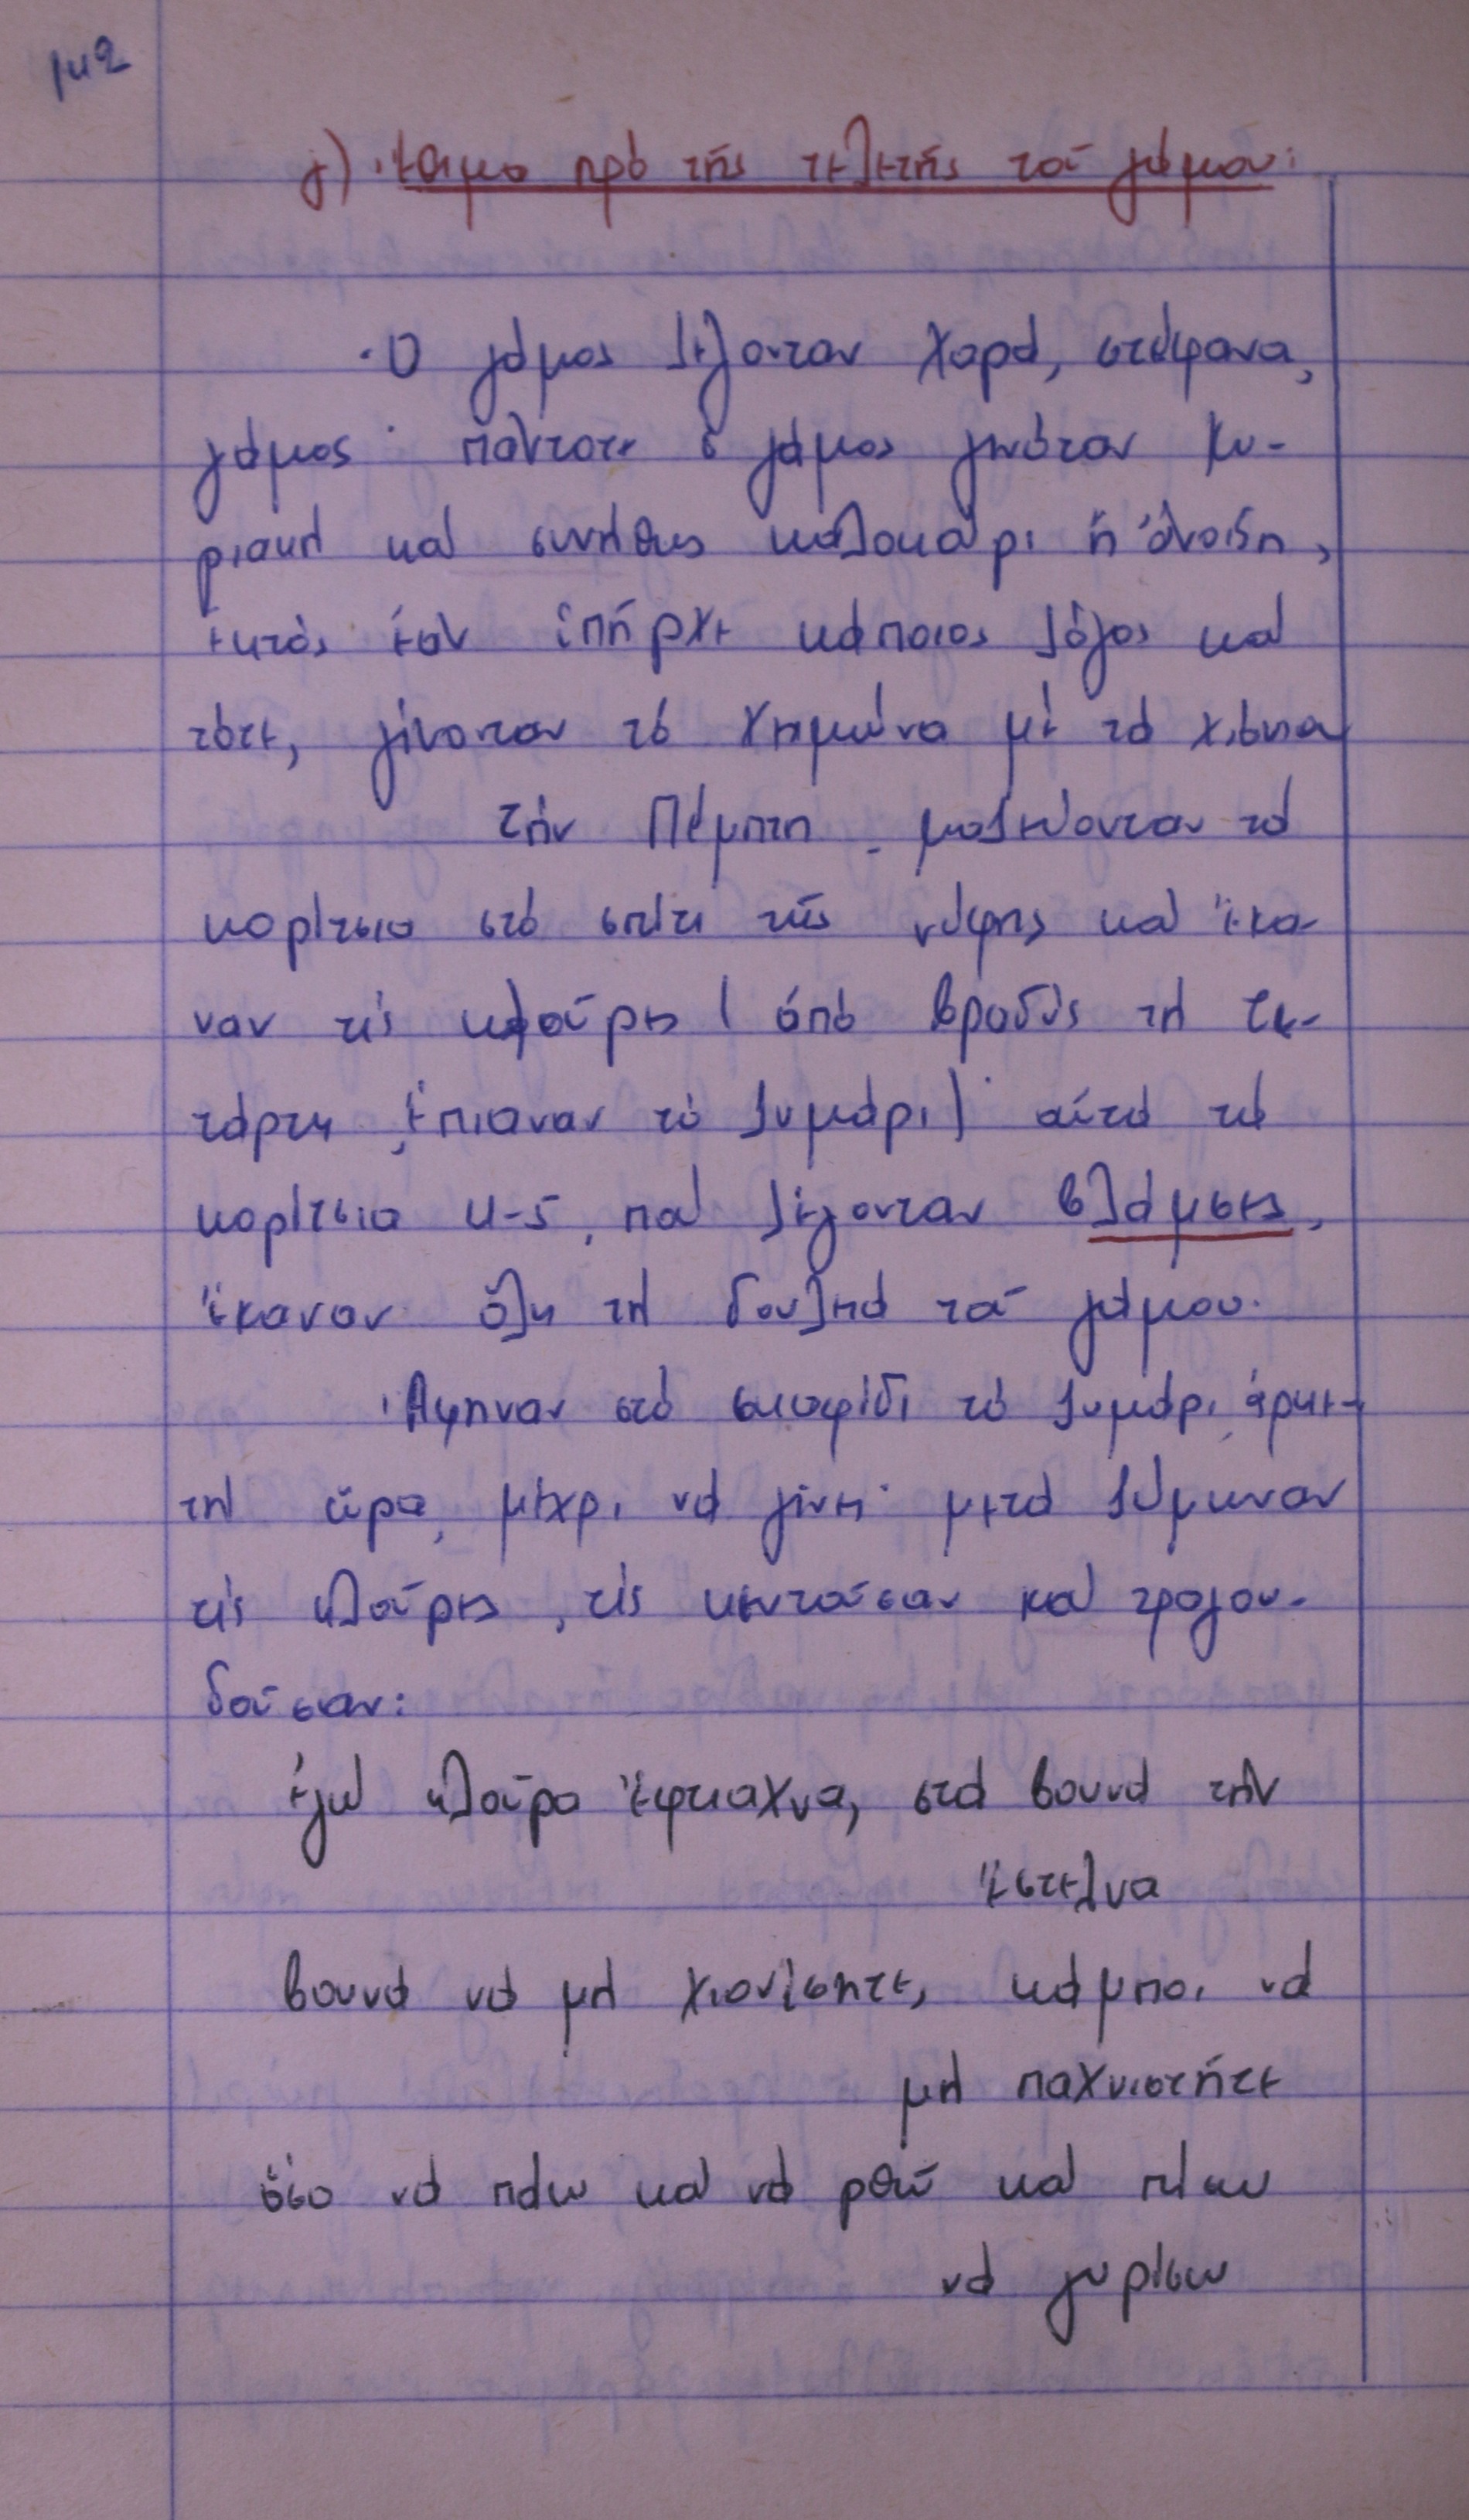 142
γ) Ἔθιμα πρό τῆς τελετῆς τοῦ γάμου:
Ὁ γάμος λέγονταν χαρά, στέφανα,
γάμος· πάντοτε ὁ γάμος γινόταν Κυ-
ριακή καί συνήθως καλοκαίρι ἤ ἄνοιξη,
ἐκτός ἐάν ὑπῆρχε κάποιος λόγος καί
τότε, γίνονταν τό χειμώνα μέ τά χιόνια
Τήν Πέμπτη μαζεύονταν τά
κορίτσια στό σπίτι τῆς νύφης καί ἔκα-
ναν τίς κλοῦρες (ἀπό βραδύς τή Τε-
τάρτη, ἔπιαναν τό ζυμάρι) αὐτά τά
κορίτσια 4-5, πού λέγονταν βλάμσες,
ἔκαναν ὅλη τή δουλειά τοῦ γάμου.
Ἄφηναν στό σκαφίδι τό ζυμάρι, ἀρκε-
τή ὥρα, μέχρι νά γίνει· μετά ζύμωναν
τίς κλοῦρες, τίς κεντοῦσαν καί τραγου-
δοῦσαν:
ἐγώ κλοῦρα ἔφτιαχνα, στά βουνά τήν
ἔστελνα
βουνά νά μή χιονίσητε, κάμποι νά
μή παχνιστῆτε
ὅσο νά πάω καί νά ρθῶ καί πίσω
νά γυρίσω